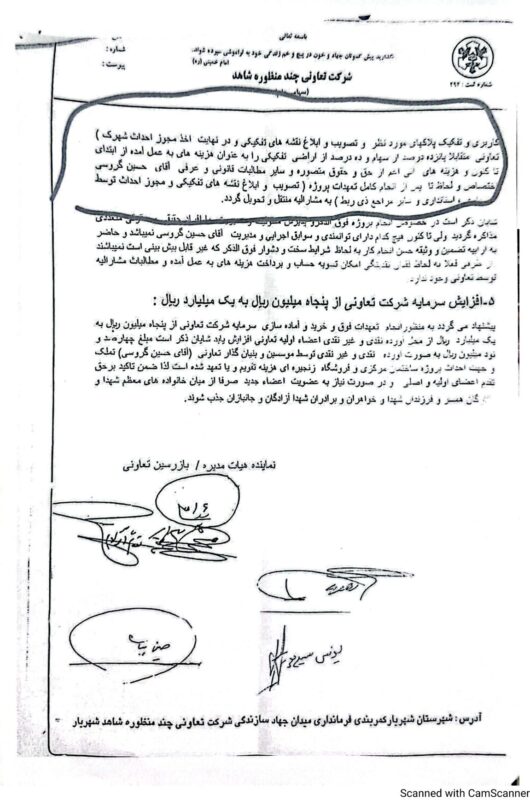 باسمه تعالی
امام خمینی (ره)
شرکت تعاونی چند منظوره شاهد
شماره :
پیوست :
شماره ثبت : ۲۹۲
کاربری و تفکیک پلاکهای مورد نظر و تصویب و ابلاغ نقشه های تفکیکی و در نهایت اخذ مجوز احداث شهرک )
تعاونی متقابلا پانزده درصد از سهام و ده درصد از اراضی تفکیکی را به عنوان هزینه های به عمل آمده از ابتدای
تا کنون و هزینه های آتی اعم از حق و حقوق متصوره و سایر مطالبات قانونی و عرفی آقای حسین گروسی
اختصاص و لحاظ تا پس از انجام کامل تعهدات پروژه ( تصویب و ابلاغ نقشه های تفکیکی و مجوز احداث توسط
استانداری و سایر مراجع ذی ربط ) به مشارالیه منتقل و تحویل گردد.
شایان ذکر است در خصوص انجام پروژه فوق الذکر
مذاکره گردید ولی تا کنون هیچ کدام دارای توانمندی و سوابق اجرایی و مدیریت آقای حسین گروسی نمیباشد و حاضر
به ارایه تضمین و وثیقه حسن انجام کار به لحاظ شرایط سخت و دشوار فوق الذکر که غیر قابل پیش بینی است نمیباشند
از طرفی فعلا به لحاظ فقدان نقدینگی امکان تسویه حساب و پرداخت هزینه های به عمل آمده و مطالبات مشارالیه
توسط تعاونی وجود ندارد.
۵-افزایش سرمایه شرکت تعاونی از پنجاه میلیون ریال به یک میلیارد ریال :
پیشنهاد می گردد به منظور انجام تعهدات فوق و خرید و آماده سازی سرمایه شرکت تعاونی از پنجاه میلیون ریال به
یک میلیارد ریال از محل آورده نقدی و غیر نقدی اعضاء اولیه تعاونی افزایش یابد شایان ذکر است مبلغ چهارصد و
نود میلیون ریال به صورت آورده نقدی و غیر نقدی توسط موسسین و بنیان گذار تعاونی (آقای حسین گروسی) تملک
و جهت احداث پروژه ساختمان مرکزی و فروشگاه زنجیره ای هزینه تقویم و یا تعهد شده است لذا ضمن تاکید برحق
تقدم اعضای اولیه و اصلی و در صورت نیاز به عضویت اعضاء جدید صرفا از میان خانواده های معظم شهدا و
همسر و فرزندان شهدا و خواهران و برادران شهدا آزادگان و جانبازان جذب شوند.
نماینده هیات مدیره / بازرسین تعاونی
آدرس : شهرستان شهریار کمربندی فرمانداری میدان جهاد سازندگی شرکت تعاونی چند منظوره شاهد شهریار
Scanned with CamScanner